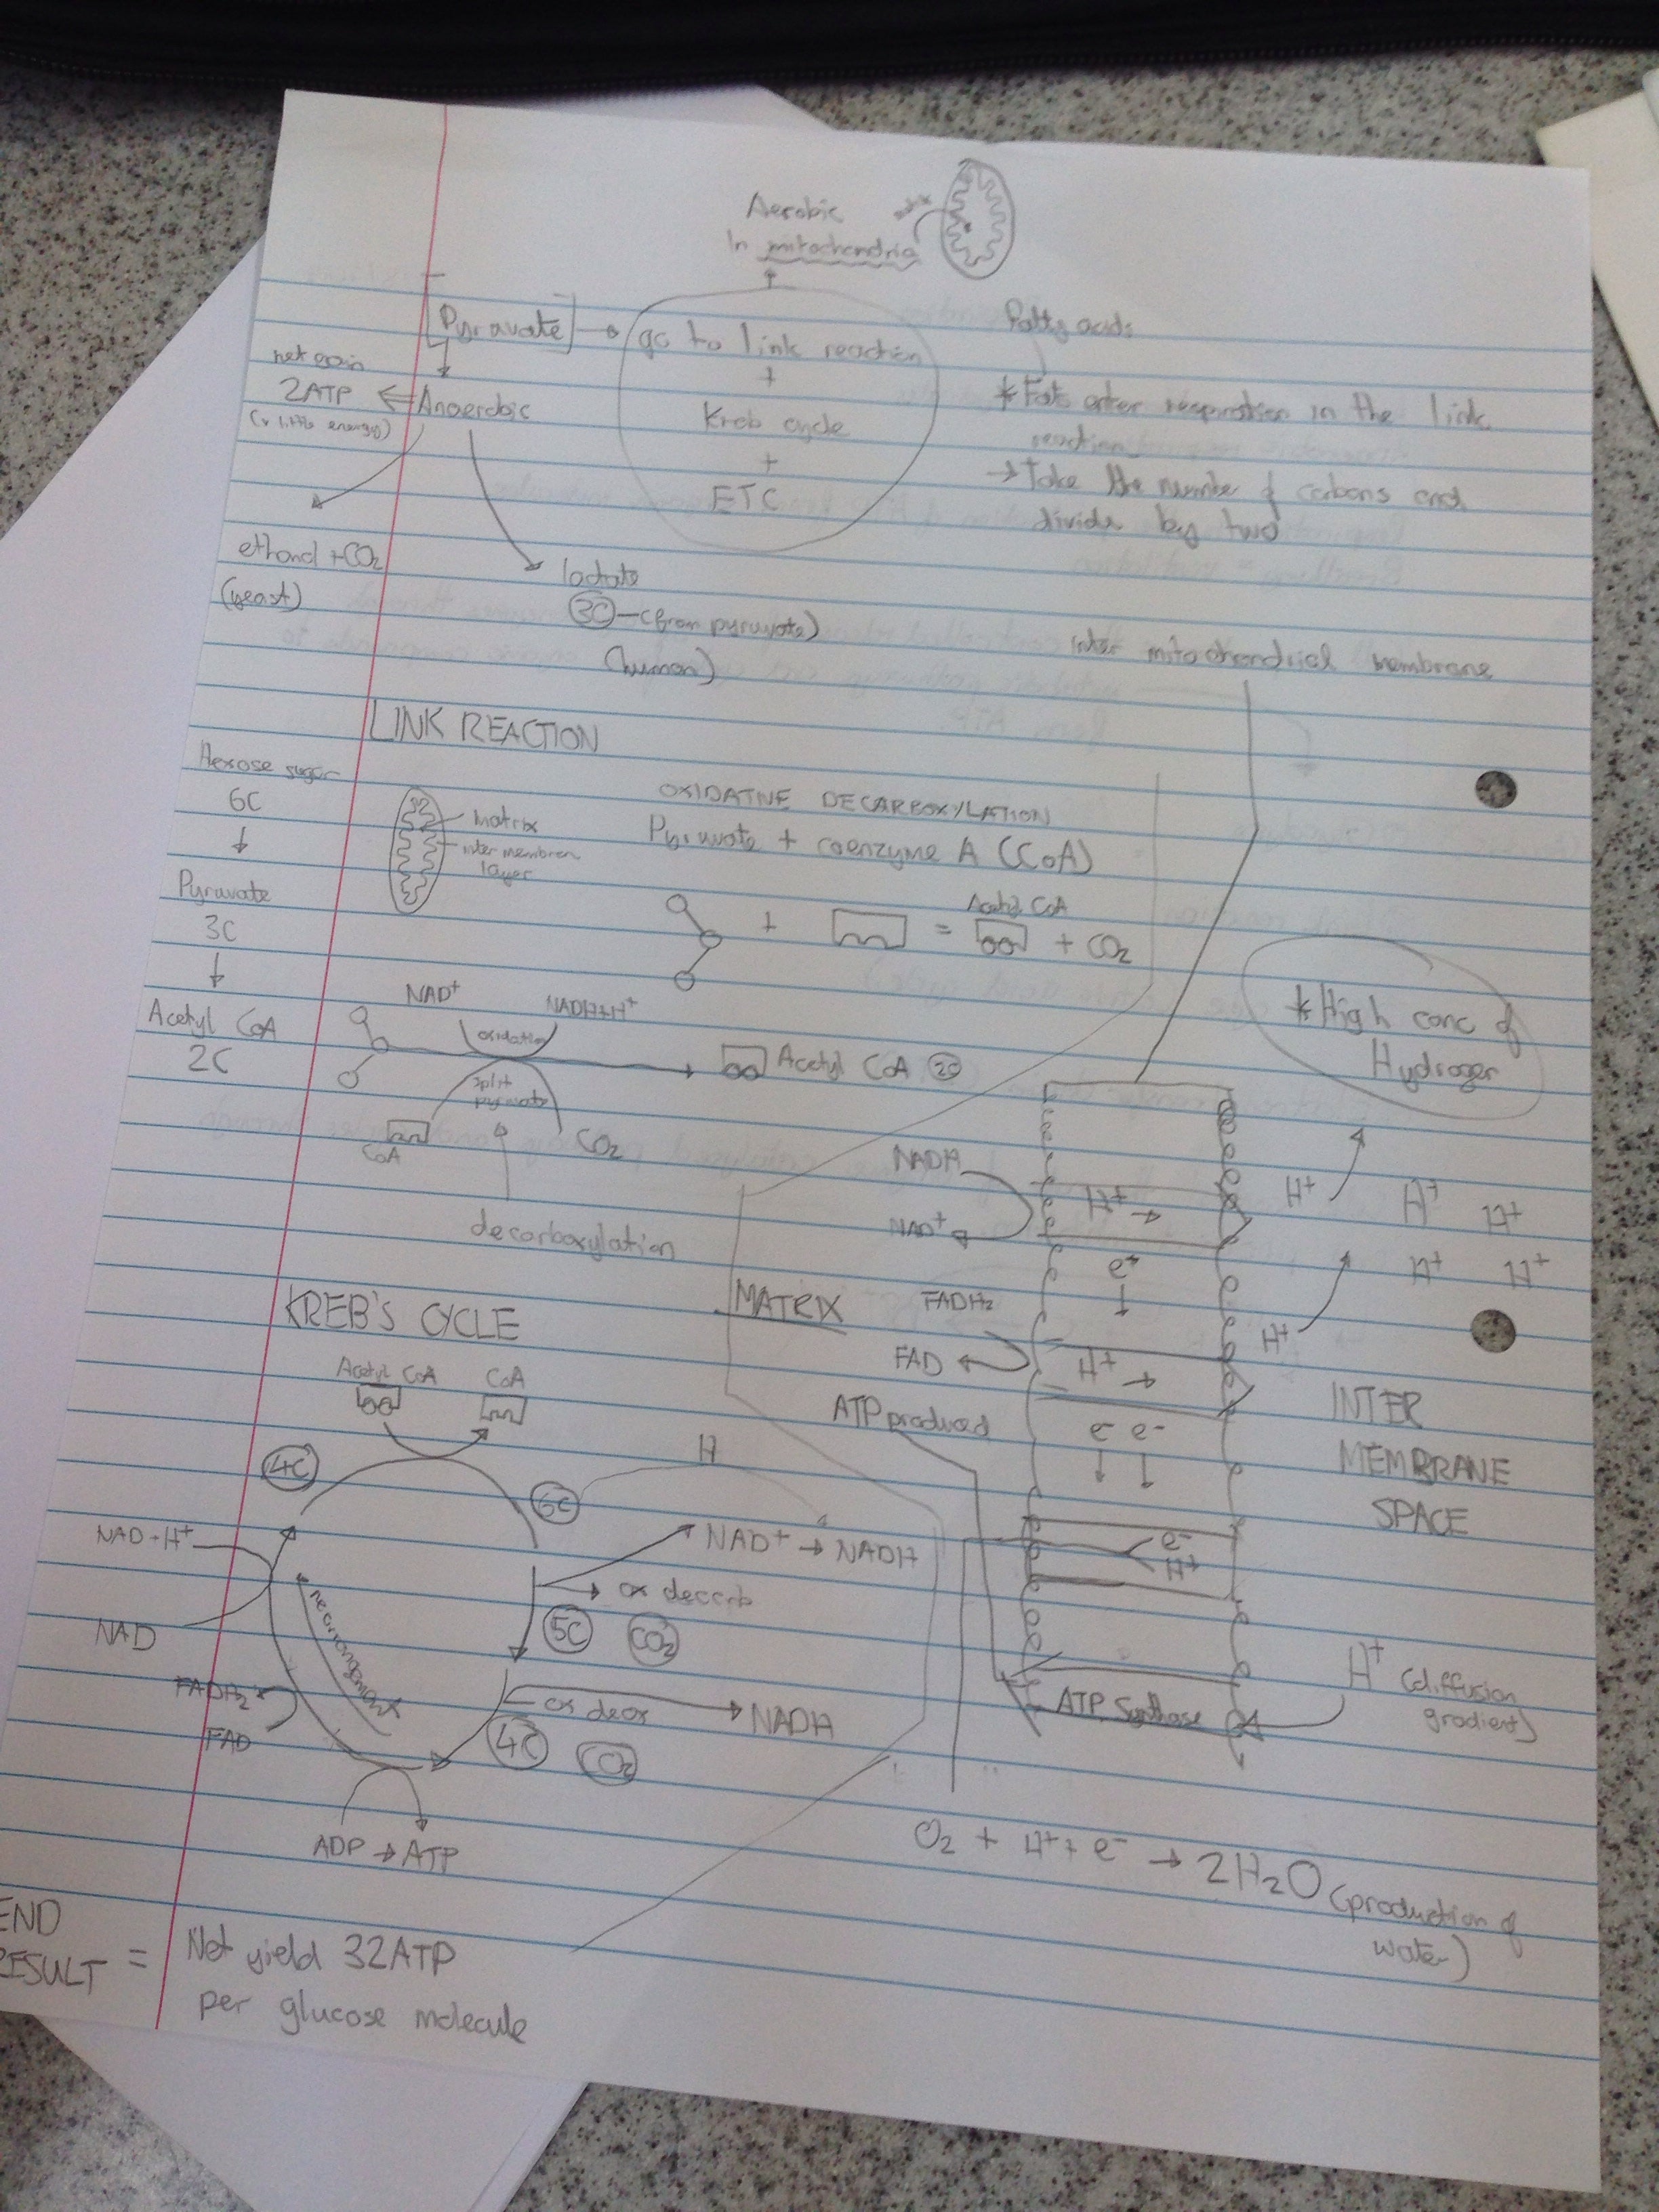 Aerobic
In mitochondria
Pyruvate
go to link reaction
+
Kreb cycle
+
ETC
net gain
2ATP
(v little energy)
Anaerobic
ethanol + CO2
(yeast)
lactate
3C - (from pyruvate)
(human)
Fatty acids
* Fats enter respiration in the link
reaction
→ Take the number of carbons and
divide by two
LINK REACTION
Hexose sugar
6C
↓
Pyruvate
3C
↓
Acetyl CoA
2C
Matrix
inter membran
layer
OXIDATIVE DECARBOXYLATION
Pyruvate + coenzyme A (CoA)
+ = Acetyl CoA + CO2
NAD+
NADH+H+
oxidation
Acetyl CoA 2C
split
pyruvate
CoA
CO2
decarboxylation
KREB'S CYCLE
Acetyl CoA
CoA
4C
6C
H
NAD+ → NADH
ox decarb
5C
CO2
ox decx
NADH
4C
CO2
ADP → ATP
FAD
FADH2
rearrangement
NAD
NAD-H+
END
RESULT = Net yield 32ATP
per glucose molecule
inter mitochondrial membrane
* High conc of
Hydrogen
MATRIX
NADH
NAD+
H+ →
H+
H+
H+
H+
H+
e-
↓
FADH2
FAD
H+ →
H+
ATP produced
e- e-
↓ ↓
INTER
MEMBRANE
SPACE
e-
H+
ATP Synthase
H+ (diffusion
gradient)
O2 + H+ + e- → 2H2O (production of
water)